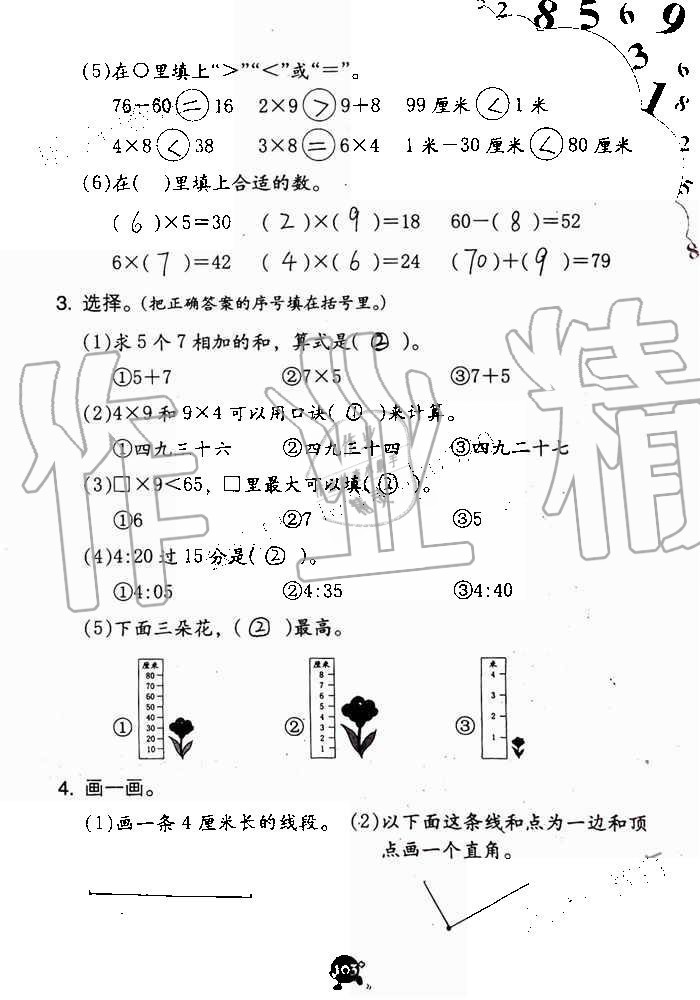 2 2 8 5 6 9
3 6
1 8
2
5
8
(5)在○里填上“>”“<”或“=”。
76-60=16 2×9>9+8 99厘米<1米
4×8<38 3×8=6×4 1米-30厘米<80厘米
(6)在( )里填上合适的数。
(6)×5=30 (2)×(9)=18 60-(8)=52
6×(7)=42 (4)×(6)=24 (70)+(9)=79
3. 选择。(把正确答案的序号填在括号里。)
(1)求5个7相加的和，算式是(②)。
①5+7 ②7×5 ③7+5
(2)4×9和9×4可以用口诀(①)来计算。
①四九三十六 ②四九三十四 ③四九二十七
(3)□×9<65，□里最大可以填(②)。
①6 ②7 ③5
(4)4:20过15分是(②)。
①4:05 ②4:35 ③4:40
(5)下面三朵花，(②)最高。
厘米 80 70 60 50 40 30 20 10
厘米 8 7 6 5 4 3 2 1
米 4 3 2 1
① ② ③
4. 画一画。
(1)画一条4厘米长的线段。 (2)以下面这条线和点为一边和顶
点画一个直角。
103
作业精